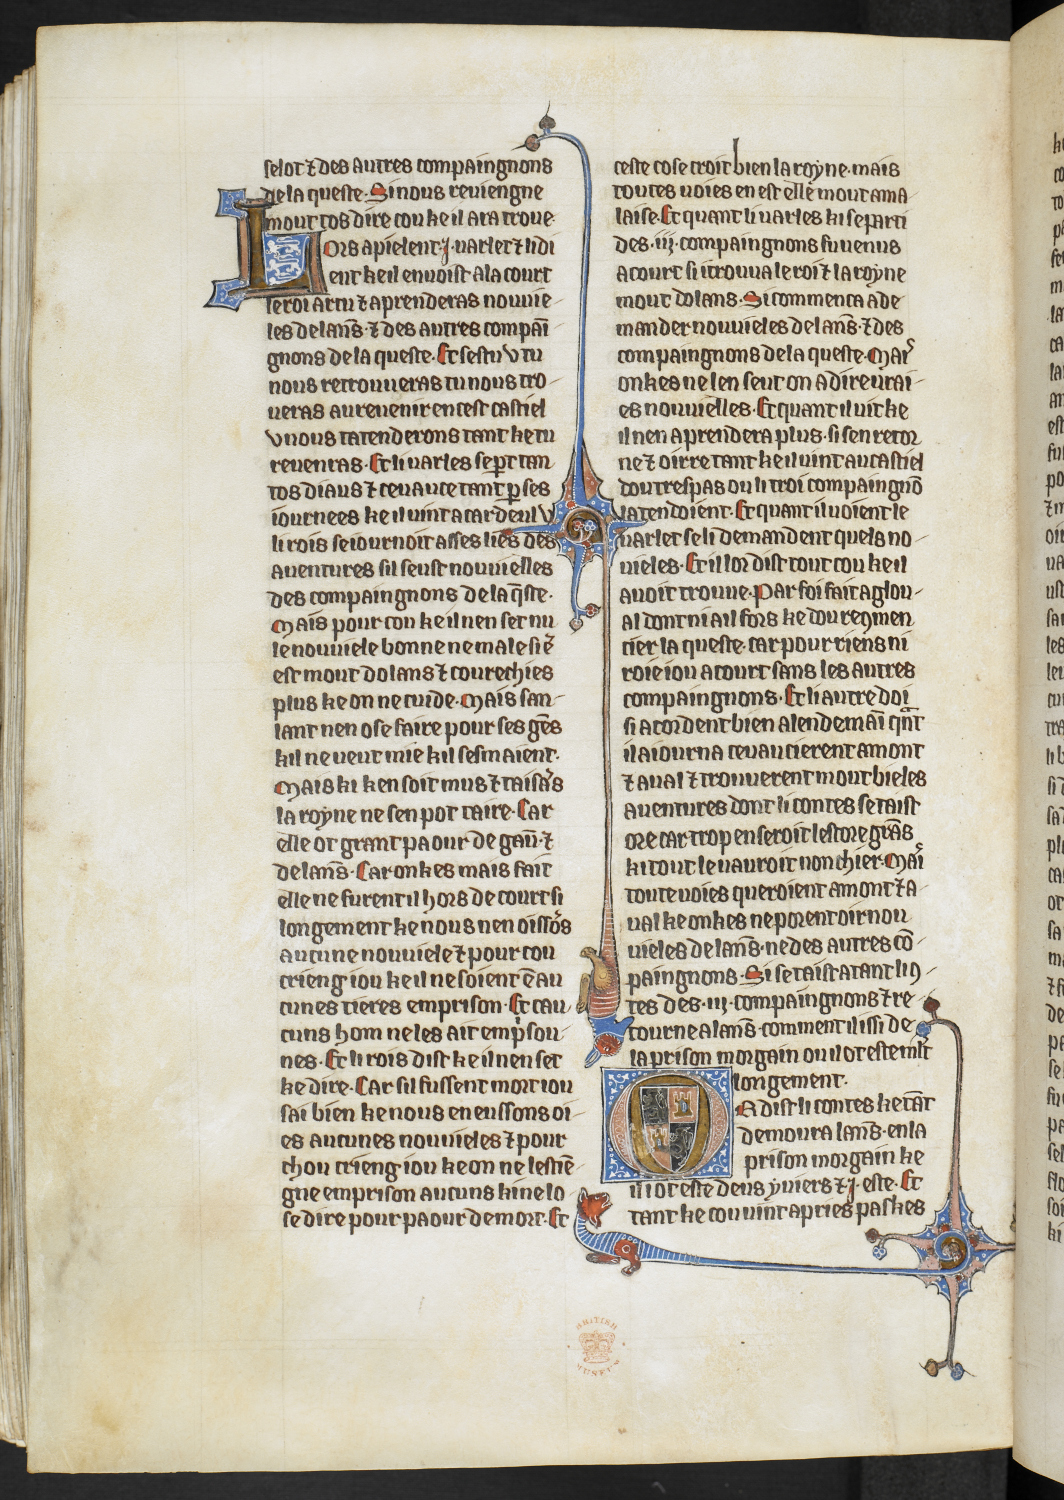 selot ⁊ des autres compaingnons
de la queste. Si nous reuiengne
mout tos dire cou ke il ara troue
Lors apielent .j. uarlet ⁊ li di
ent ke il en uoist a la court
le roi artu ⁊ aprenderas nouuie-
les de lanc̄. ⁊ des autres compaī
gnons de la queste. Et se stu v tu
nous retrouueras tu nous tro-
ueras au reuenir en cest castiel
v nous tatenderons tant ke tu
reuenras. Et li uarles se ꝑt tan
tos diaus ⁊ ceuauce tant ꝑ ses
iournees ke il uint a cardeul v
li rois seiournoit asses lies des
auentures sil seust nouuielles
des compaingnons de la q̄ste.
Mais pour cou ke il nen set nu
le nouuiele bonne ne male si ē
est mout dolans ⁊ courechies
plus ke on ne cuide. Mais san-
lant nen ose faire pour ses gēs
kil ne ueut mie kil sesmaient.
Mais ki ken soit mus ⁊ taisās
la royne ne sen pot taire. Car
elle ot grant paour de gau̅. ⁊
de lanc̄. Car onkes mais fait
elle ne furent il hors de court si
longement ke nous nen oissōs
aucune nouuiele ⁊ pour cou
crieng iou ke il ne soient ē au
cunes tieres emprison. Et cau-
cuns hom ne les ait emprisou-
nes. Et li rois dist ke il nen set
ke dire. Car sil fussent mort iou
sai bien ke nous en eussons oi-
es aucunes nouuieles ⁊ pour
chou crieng iou ke on ne les tiē-
gne emprison aucuns ki ne lo-
se dire pour paour de mort. Et
ceste cose croit bien la royne. mais
toutes uoies en est elle mout ama-
laise. Et quant li uarles ki se parti
des .iij. compaingnons fu uenus
a court si i trouua le roi ⁊ la royne
mout dolans. Si commenca a de-
mander nouuieles de lanc̄. ⁊ des
compaingnons de la queste. Mais
onkes ne len seut on a dire urai-
es nouuielles. Et quant il uit ke
il nen aprendera plus. si sen retor
ne ⁊ oirre tant ke il uint au castiel
doutrespas ou li troi compaingnō
latendoient. Et quant il uoient le
uarlet se li demandent quels no-
uieles. Et il lor dist tout cou ke il
auoit trouue. Par foi fait aglou-
al dont ni a il fors ke dou reqmen
cier la queste. car pour riens ni
roie iou a court sans les autres
compaingnons. Et li autre doi
si acordent bien a lendemaī qn̄t
il aiourna ceuaucierent amont
⁊ aual ⁊ trouuerent mout bieles
auentures dont li contes se taist
ore car trop en seroit lestore grās
ki tout le uauroit nonchier. Mais
toute uoies queroient amont ⁊ a-
ual ke onkes ne porent oir nou
uieles de lanc̄. ne des autres cō-
paingnons. Si se taist atant li 9-
tes des .iij. compaingnons ⁊ re-
tourne a lanc̄. comment il issi de
la prison morgain ou il ot este mlt
longement.
Or dist li contes ke tāt
demoura lanc̄. en la
prison morgain ke
il i ot este deus yuiers ⁊ .j. este. Et
tant ke cou uint apries paskes
BRITISH
MUSEUM